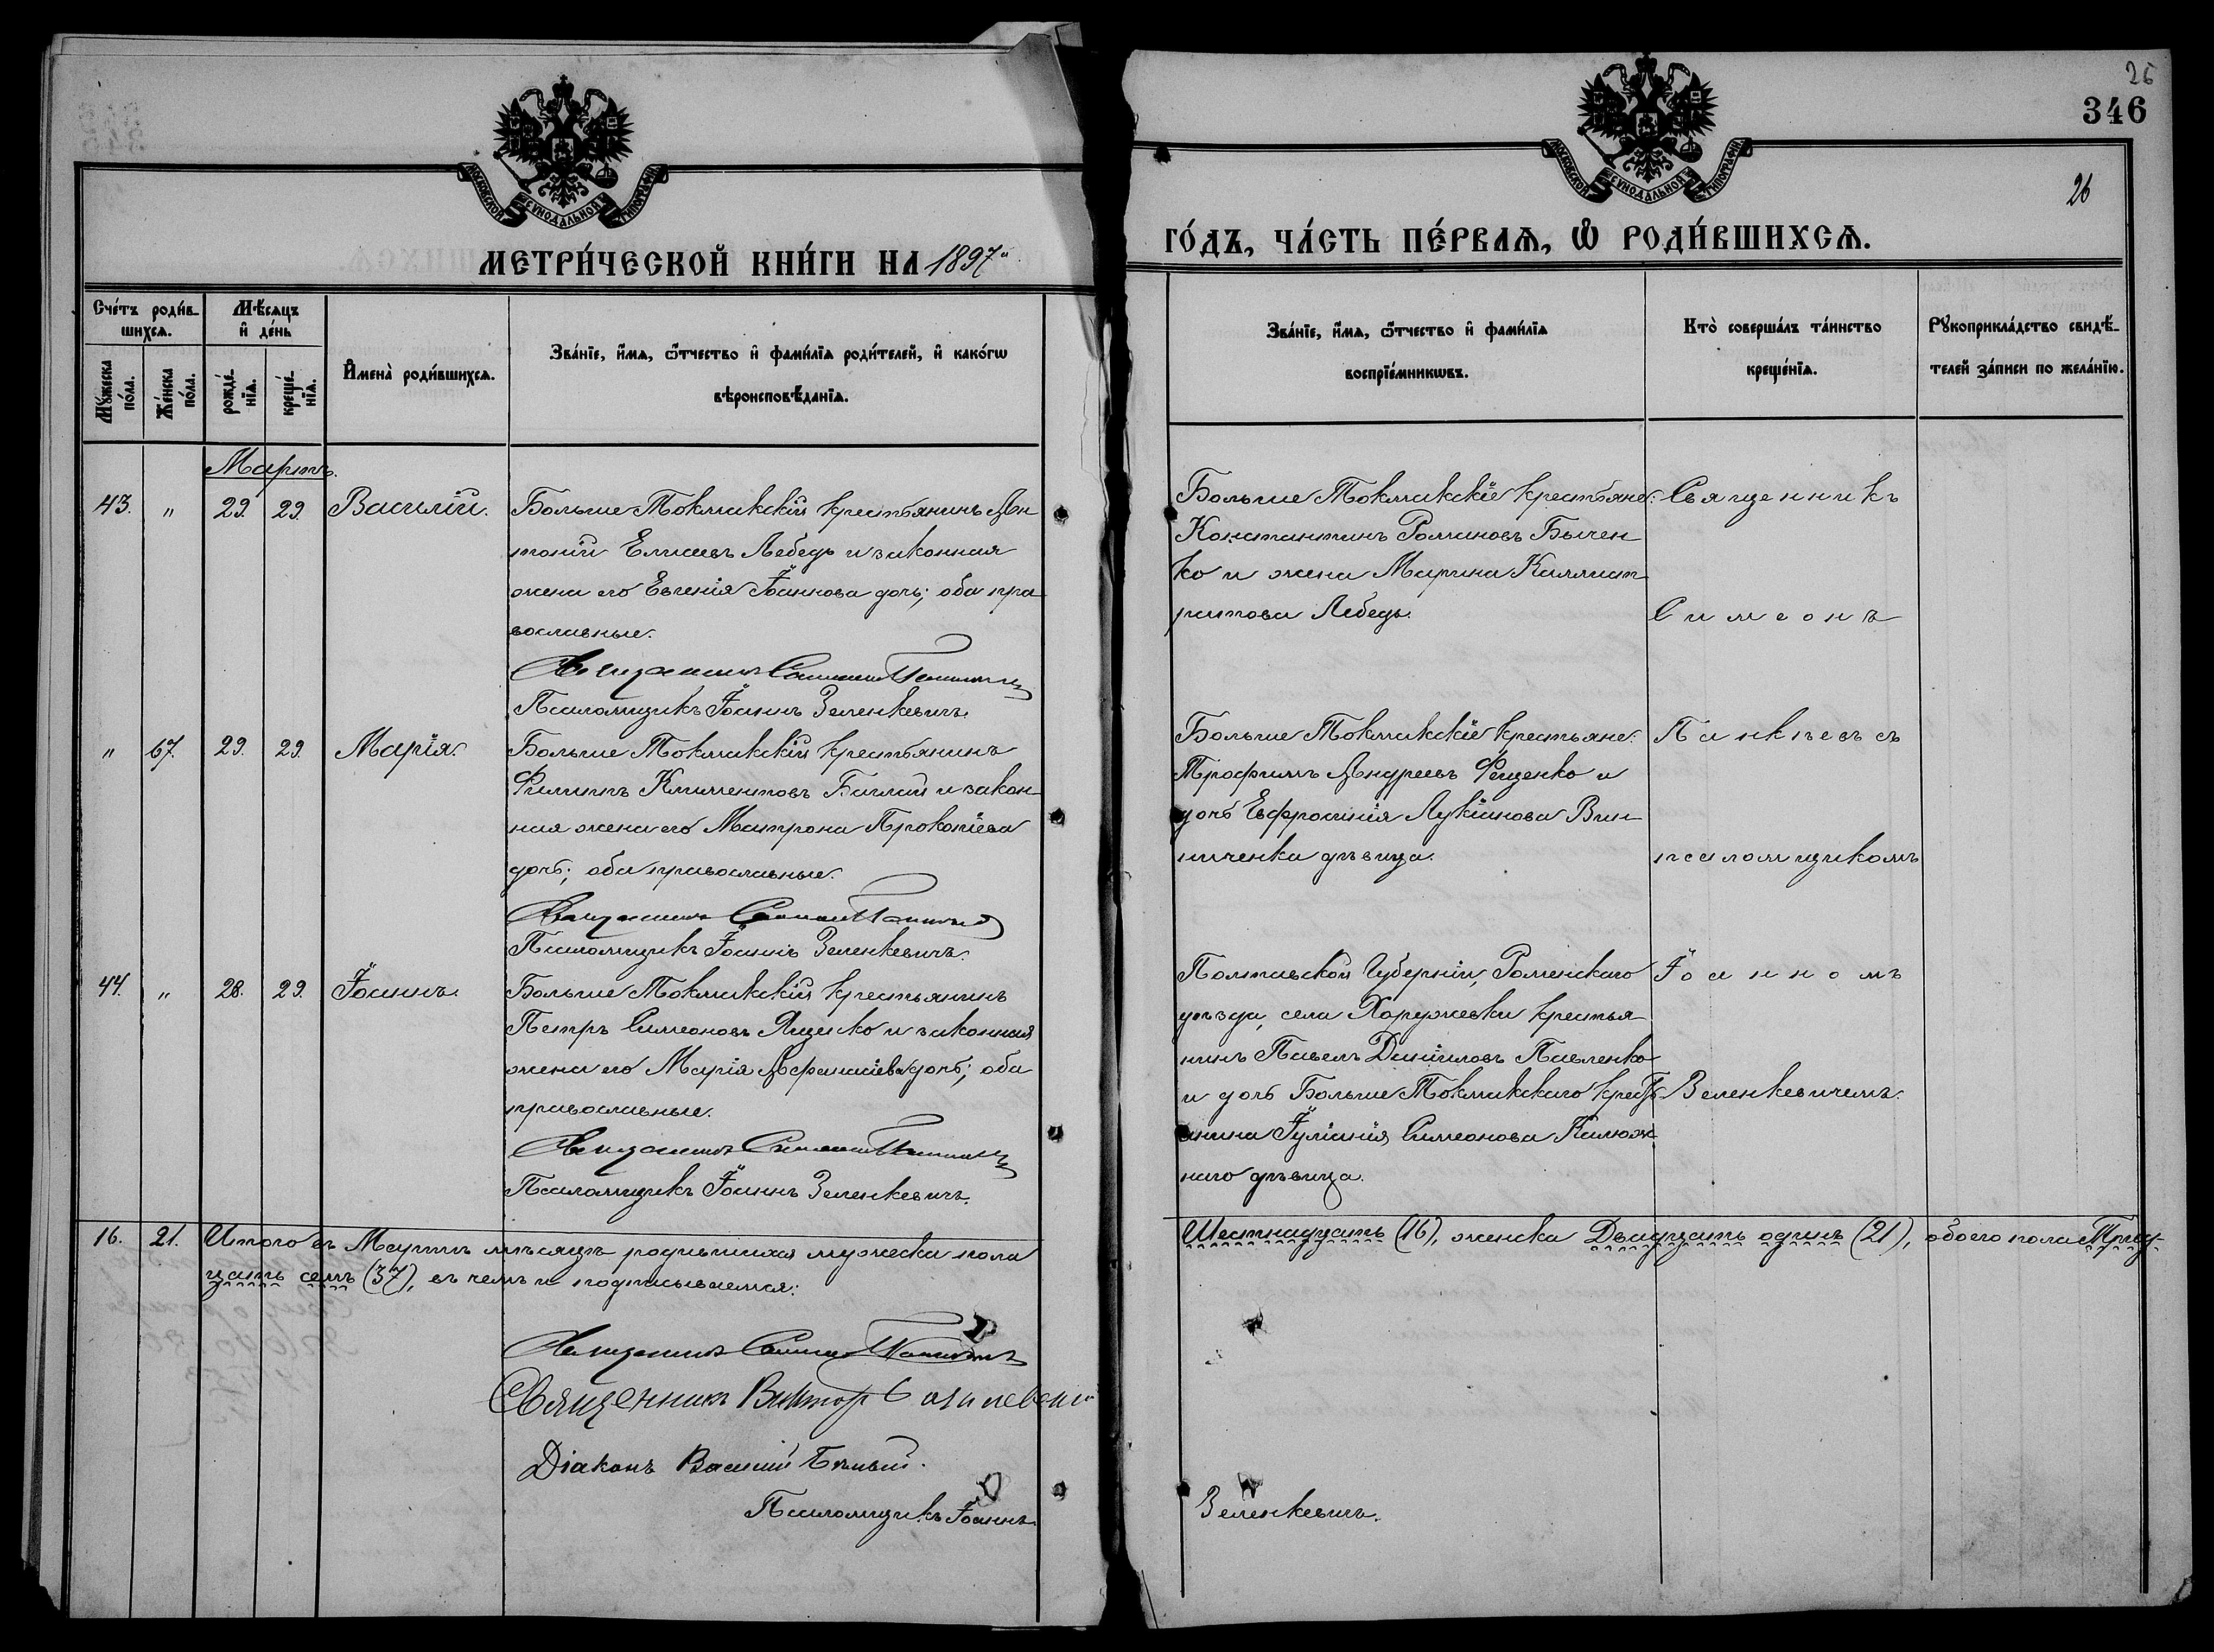 МОСКОВСКОЙ СУНОДАЛЬНОЙ ТИПОГРАФІИ
МЕТРИ́ЧЕСКОЙ КНИ́ГИ НА 1897
Сче́тъ роди́в-
шихсѧ.
Мѣ́сяцъ
и҆ де́нь
Мꙋ́жеска
по́ла.
Же́нска
по́ла.
рожде́-
нїѧ.
креще́-
нїѧ.
И҆мена̀ роди́вшихсѧ.
Зва́нїе, и҆́мѧ, ѻ҆́тчество и҆ фами́лїѧ роди́телей, и҆ како́гѡ
вѣроисповѣ́данїѧ.
Мартъ.
43. " 29. 29. Василій.
Больше Токмакскій крестьянинъ Ан
тоній Елисеевъ Лебедь и законная
жена его Евгенія Іоаннова дочь; оба пра
вославные.
Священникъ Симеонъ
Псаломщикъ Іоаннъ Зеленкевичъ.
" 67. 29. 29. Марія.
Больше Токмакскій крестьянинъ
Филиппъ Климентовъ и закон
ная жена его Матрона Прокопіева
дочь; оба православные.
Священникъ Симеонъ
Псаломщикъ Іоаннъ Зеленкевичъ.
44. " 28. 29. Іоаннъ.
Больше Токмакскій крестьянинъ
Петръ Симеоновъ Яценко и законная
жена его Марія Афанасіева дочь; оба
православные.
Священникъ Симеонъ
Псаломщикъ Іоаннъ Зеленкевичъ.
16. 21. Итого въ Мартѣ мѣсяцѣ родившихся мужеска пола
цать семь (37), въ чемъ и подписываемся:
Священникъ Симеонъ
Священникъ Викторъ
Діаконъ Василій Бѣлый.
Псаломщикъ Іоаннъ
26
346
26
МОСКОВСКОЙ СУНОДАЛЬНОЙ ТИПОГРАФІИ
ГО́ДЪ, ЧА́СТЬ ПЕ́РВАѦ, Ѽ РОДИ́ВШИХСѦ.
Зва́нїе, и҆́мѧ, ѻ҆́тчество и҆ фами́лїѧ
воспрїе́мникѡвъ.
Кто̀ соверша́лъ та́инство
креще́нїѧ.
Рꙋкоприкла́дство свидѣ́-
телей за́писи по жела́нїю.
Больше Токмакскіе крестьяне:
Константинъ Романовъ Бычен
ко и жена Марина Каллист
ратова Лебедь.
Больше Токмакскіе крестьяне:
Трофимъ Андреевъ Фещенко и
дочь Евфросинія Лукіанова Вин
ниченка дѣвица.
Полтавской Губерніи, Роменскаго
уѣзда, села Харужевки крестья
нинъ Павелъ Даніиловъ Павленко
и дочь Больше Токмакскаго кресть
янина Іуліанія Симеонова Калюж
наго дѣвица.
Священникъ
Симеонъ
Панкѣевъ съ
псаломщикомъ
Іоанномъ
Зеленкевичемъ.
Шестнадцать (16), женска Двадцать одинъ (21), обоего пола Трид-
Зеленкевичъ.